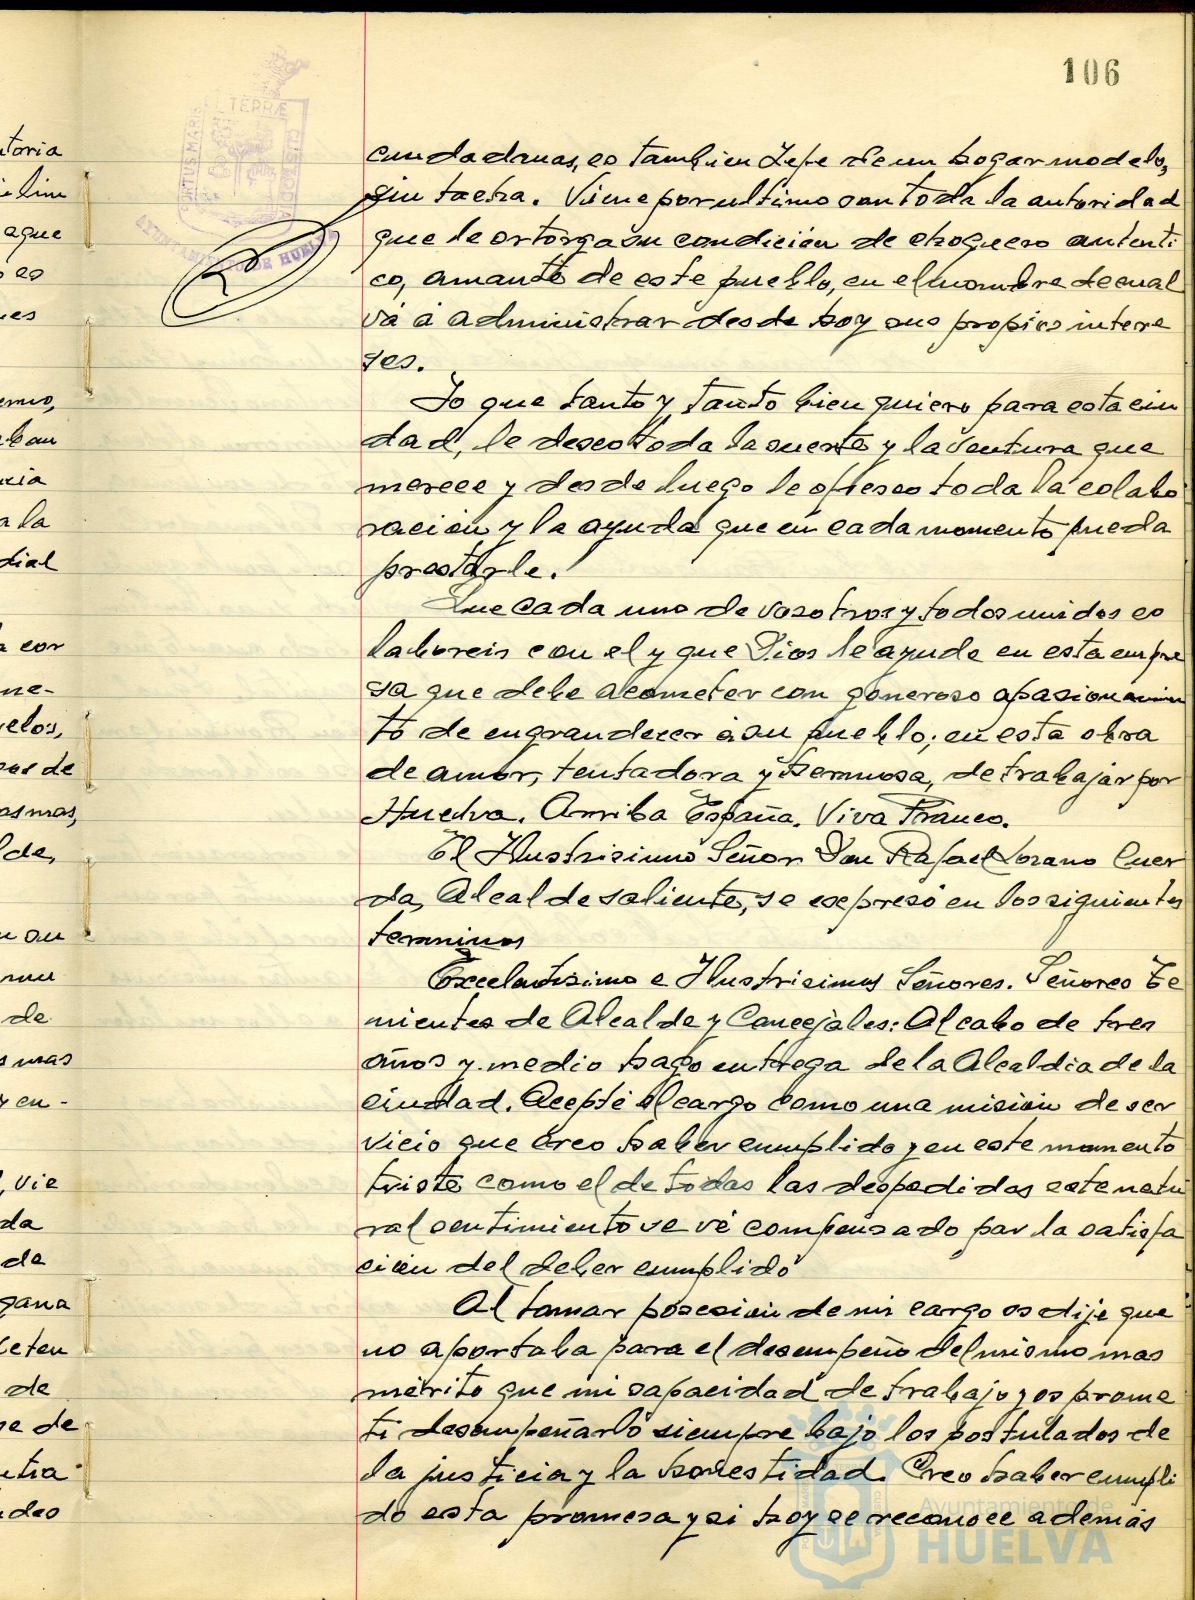 106
PORTUS MARIS ET TERRÆ CUSTODIA
AYUNTAMIENTO DE HUELVA
ciudadanas, es tambien Jefe de un hogar modelo,
sin tacha. Viene por ultimo con toda la autoridad
que le ortorga su condición de choquero autenti
co, amante de este pueblo, en el nombre de cual
vá á administrar desde hoy sus propios intere
ses.
Yo que tanto y tanto bien quiero para esta ciu
dad, le deseo toda la suerte y la ventura que
merece y desde luego le ofresco toda la colabo
ración y la ayuda que en cada momento pueda
prestarle.
Que cada uno de vosotros y todos unidos co
laboreis con el y que Dios le ayude en esta empre
sa que debe acometer con generoso apasionamien
to de engrandecer a su pueblo; en esta obra
de amor, tentadora y hermosa, de trabajar por
Huelva. Arriba España. Viva Franco.
El Ilustrisimo Señor Don Rafael Lozano Cuer
da, Alcalde saliente, se expresó en los siguientes
terminos
Excelentisimo e Ilustrisimos Señores. Señores Te
nientes de Alcalde y Concejales: Al cabo de tres
años y medio hago entrega de la Alcaldia de la
ciudad. Acepté el cargo como una misión de ser
vicio que creo haber cumplido y en este momento
triste como el de todas las despedidas este natu
ral sentimiento se vé compensado por la satisfa
ción del deber cumplido
Al tomar posesión de mi cargo os dije que
no aportaba para el desempeño del mismo mas
mérito que mi capacidad de trabajo y os prome
ti desempeñarlo siempre bajo los postulados de
la justicia y la honestidad. Creo haber cumpli
do esta promesa y si hoy se reconoce además
Ayuntamiento de
HUELVA